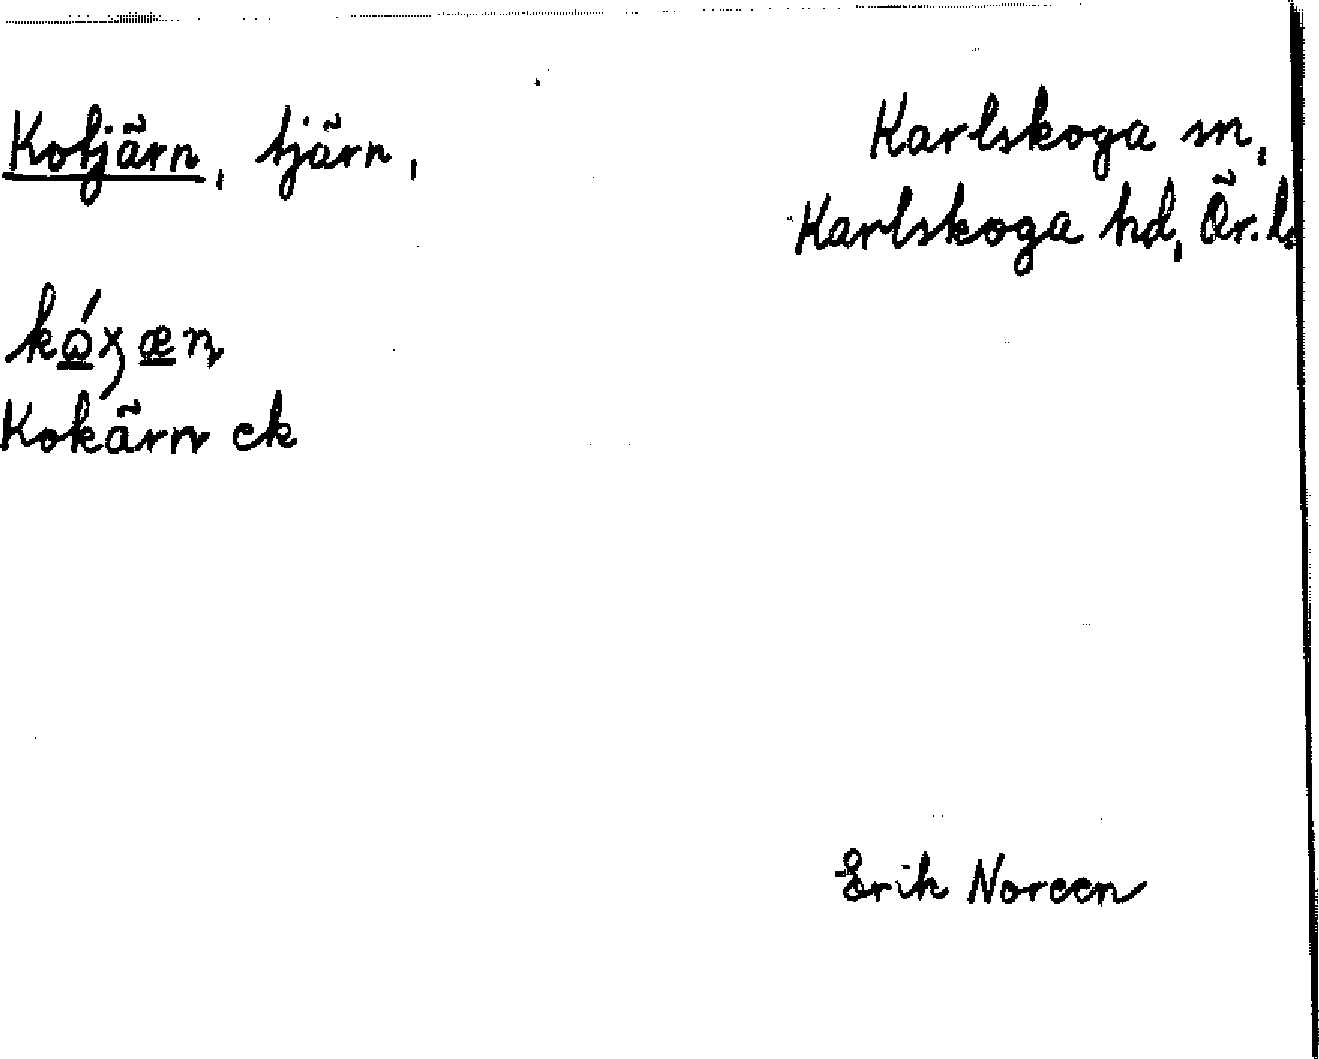 Kotjärn, tjärn,
Karlskoga sn,
Karlskoga hd, Ör. l.
Kokärn ek
Erik Noreen